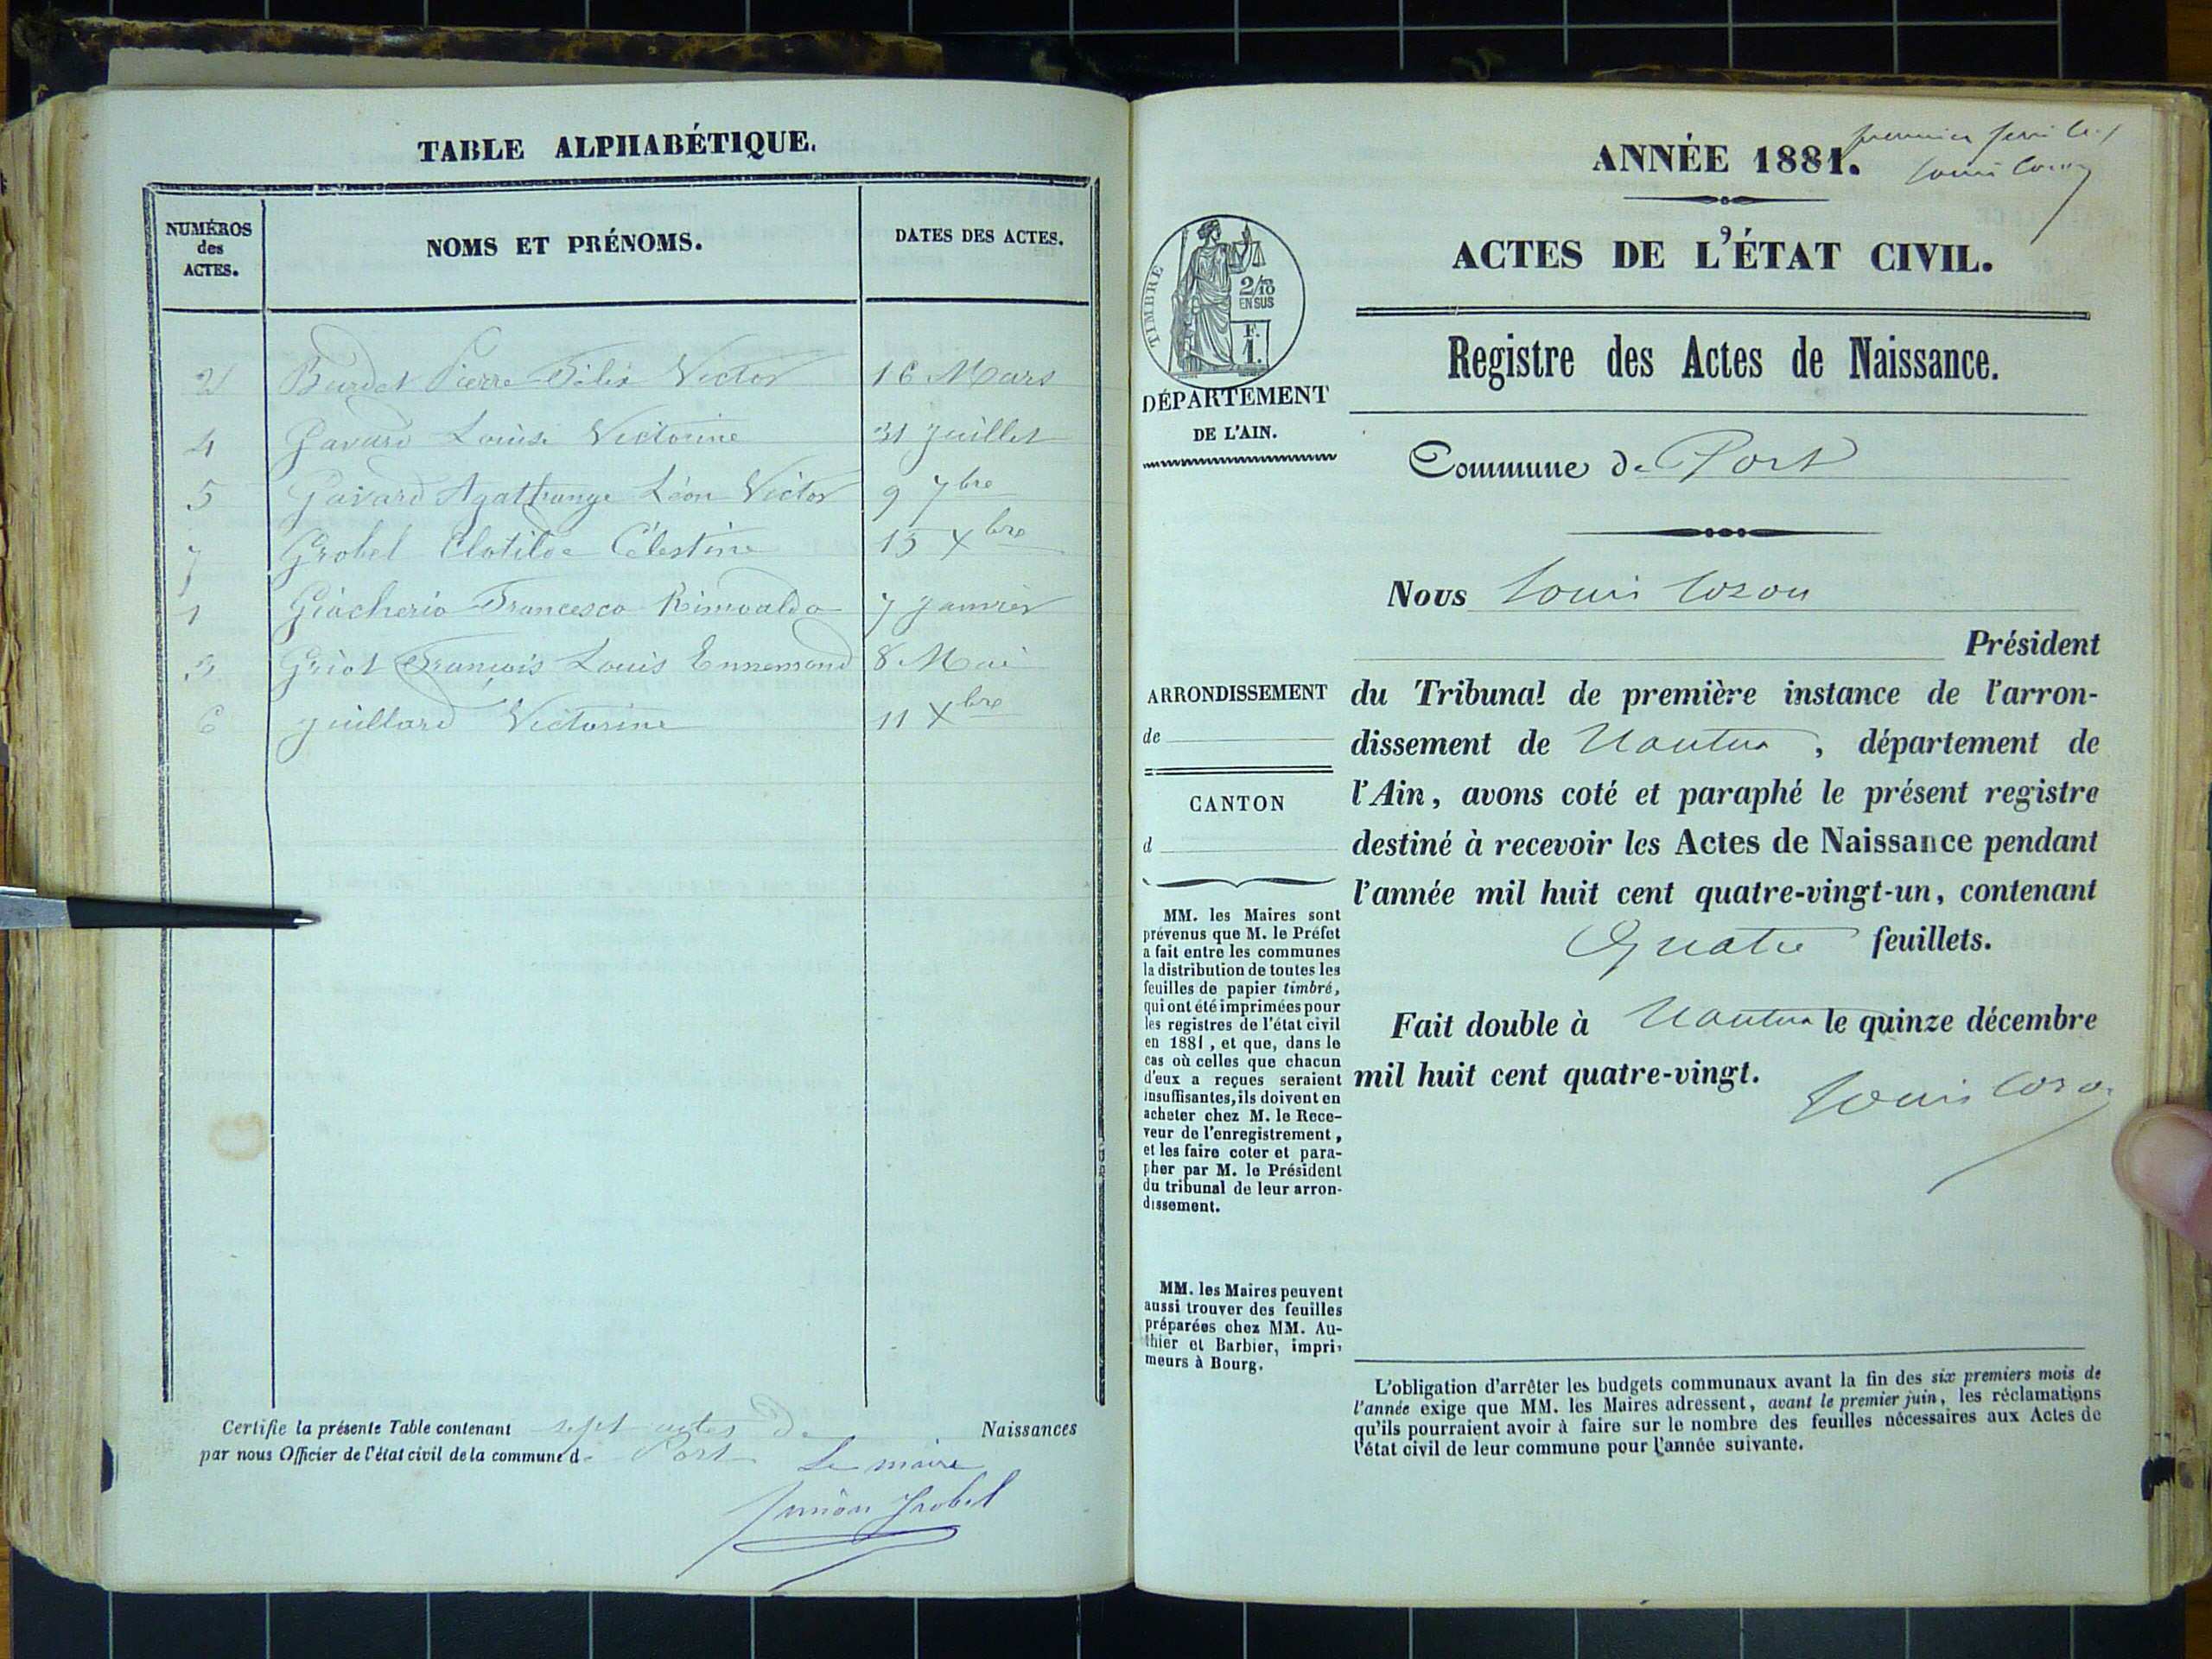 TABLE ALPHABÉTIQUE.
NUMÉROS des ACTES. NOMS ET PRÉNOMS. DATES DES ACTES.
2 Burdet Pierre Félix Victor 16 Mars
4 Gavard Louise Victorine 31 Juillet
5 Gavard Agathange Léon Victor 9 7bre
7 Grobel Clotilde Célestine 15 Xbre
1 Giacherio Francesco 7 Janvier
3 Griot François Louis Ennemond 8 Mai
6 Juillard Victorine 11 Xbre
Certifie la présente Table contenant sept actes de Naissances
par nous Officier de l'état civil de la commune de Port
Le maire
Grobel
premier feuillet
ANNÉE 1881.
Louis Cozon
ACTES DE L'ÉTAT CIVIL.
TIMBRE
2/10
EN SUS
F.
1.
Registre des Actes de Naissance.
DÉPARTEMENT
DE L'AIN.
Commune de Port
Nous Louis Cozon
Président
ARRONDISSEMENT
de
CANTON
d
du Tribunal de première instance de l'arron-
dissement de Nantua, département de
l'Ain, avons coté et paraphé le présent registre
destiné à recevoir les Actes de Naissance pendant
l'année mil huit cent quatre-vingt-un, contenant
Quatre feuillets.
Fait double à Nantua le quinze décembre
mil huit cent quatre-vingt.
Louis Cozon
MM. les Maires sont
prévenus que M. le Préfet
a fait entre les communes
la distribution de toutes les
feuilles de papier timbré,
qui ont été imprimées pour
les registres de l'état civil
en 1881, et que, dans le
cas où celles que chacun
d'eux a reçues seraient
insuffisantes, ils doivent en
acheter chez M. le Rece-
veur de l'enregistrement,
et les faire coter et para-
pher par M. le Président
du tribunal de leur arron-
dissement.
MM. les Maires peuvent
aussi trouver des feuilles
préparées chez MM. Au-
thier et Barbier, impri-
meurs à Bourg.
L'obligation d'arrêter les budgets communaux avant la fin des six premiers mois de
l'année exige que MM. les Maires adressent, avant le premier juin, les réclamations
qu'ils pourraient avoir à faire sur le nombre des feuilles nécessaires aux Actes de
l'état civil de leur commune pour l'année suivante.